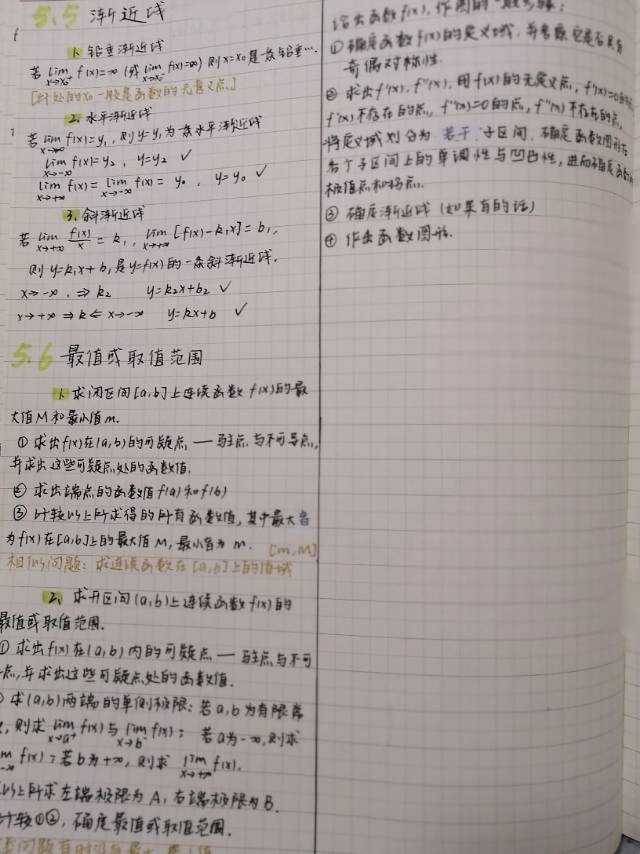 5.5 渐近线
1. 铅垂渐近线
若 lim x→x₀⁺ f(x)=∞ (或 lim x→x₀⁻ f(x)=∞) 则 x=x₀ 是一条铅垂…
[此处的x₀一般是函数的无意义点]
2. 水平渐近线
若 lim x→+∞ f(x)=y₁, 则 y=y₁ 为一条水平渐近线
lim x→-∞ f(x)=y₂, y=y₂ ✓
lim x→+∞ f(x) = lim x→-∞ f(x) = y₀, y=y₀ ✓
3. 斜渐近线
若 lim x→+∞ f(x)/x = k₁, lim x→+∞ [f(x)-k₁x] = b₁,
则 y=k₁x+b₁ 是 y=f(x) 的一条斜渐近线.
x→-∞, ⇒ k₂ y=k₂x+b₂ ✓
x→+∞ ⇒ k ⇐ x→-∞ y=kx+b ✓
5.6 最值或取值范围
1. 求闭区间[a,b]上连续函数 f(x)的最
大值M和最小值m.
① 求出f(x)在(a,b)的可疑点 — 驻点与不可导点,
并求出这些可疑点处的函数值.
② 求出端点的函数值f(a)和f(b)
③ 比较以上所求得的所有函数值, 其中最大者
为f(x)在[a,b]上的最大值M, 最小者为m. [m,M]
相似问题: 求连续函数在[a,b]上的值域
2. 求开区间(a,b)上连续函数f(x)的
最值或取值范围.
① 求出f(x)在(a,b)内的可疑点 — 驻点与不可
点, 并求出这些可疑点处的函数值.
求(a,b)两端的单侧极限: 若a,b为有限常
, 则求 lim x→a⁺ f(x)与 lim x→b⁻ f(x); 若a为-∞, 则求
m -∞ f(x); 若b为+∞, 则求 lim x→+∞ f(x).
以上所求左端极限为A, 右端极限为B.
比较①②, 确定最值或取值范围.
给出函数f(x), 作图的一般步骤:
① 确定函数f(x)的定义域, 并考察它是否具有
奇偶对称性.
② 求出f'(x), f''(x), 用f(x)的无定义点, f'(x)=0的点
f'(x)不存在的点, f''(x)=0的点, f''(x)不存在的点
将定义域划分为若干子区间. 确定函数图形在
各个子区间上的单调性与凹凸性, 进而确定函数的
极值点和拐点.
③ 确定渐近线 (如果有的话)
④ 作出函数图形.